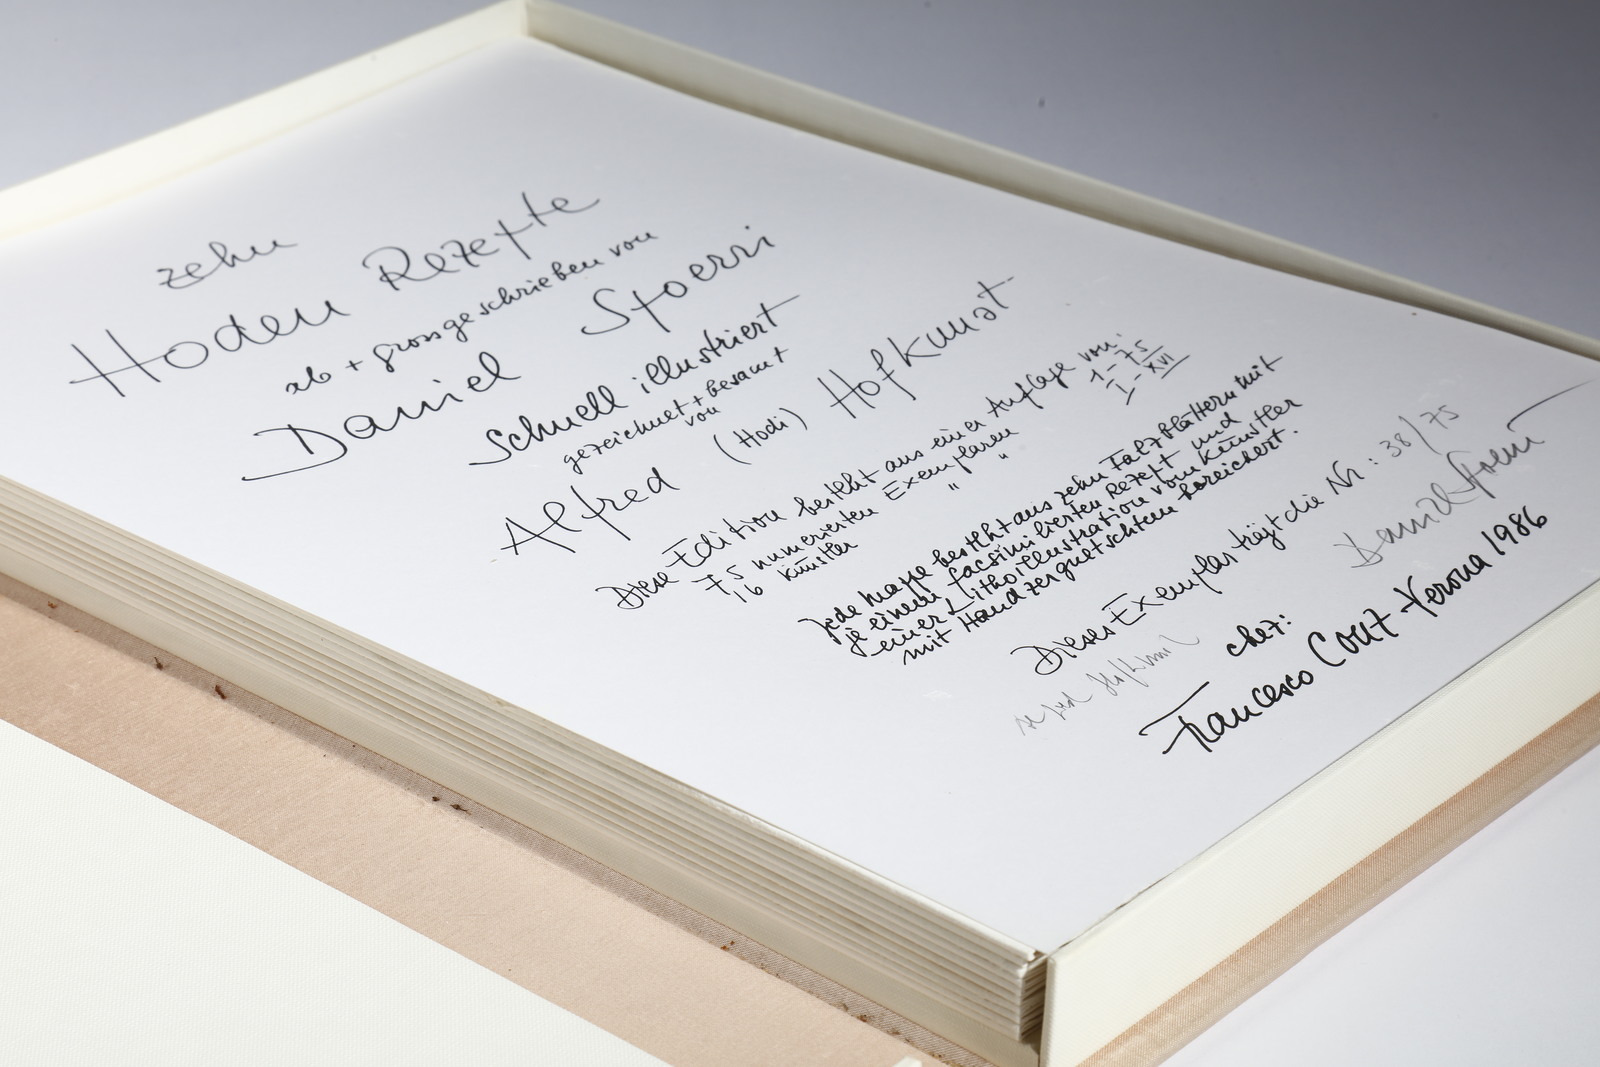 zehn
Hoden Rezepte
ab + grossgeschrieben von
Daniel Spoerri
schnell illustriert
gezeichnet + besamt
von
Alfred (Hodi) Hofkunst
Diese Edition besteht aus einer Auflage von:
75 numerierten Exemplaren 1-75
16 Künstler " " I-XVI
jede Mappe besteht aus zehn Falzblättern mit
je einem facsimilierten Rezept und
einer Lithoillustration vom Künstler
mit Hand zerquetschtem bereichert.
Dieses Exemplar trägt die Nr.: 38/75
Daniel Spoerri
chez:
Francesco Conz-Verona 1986